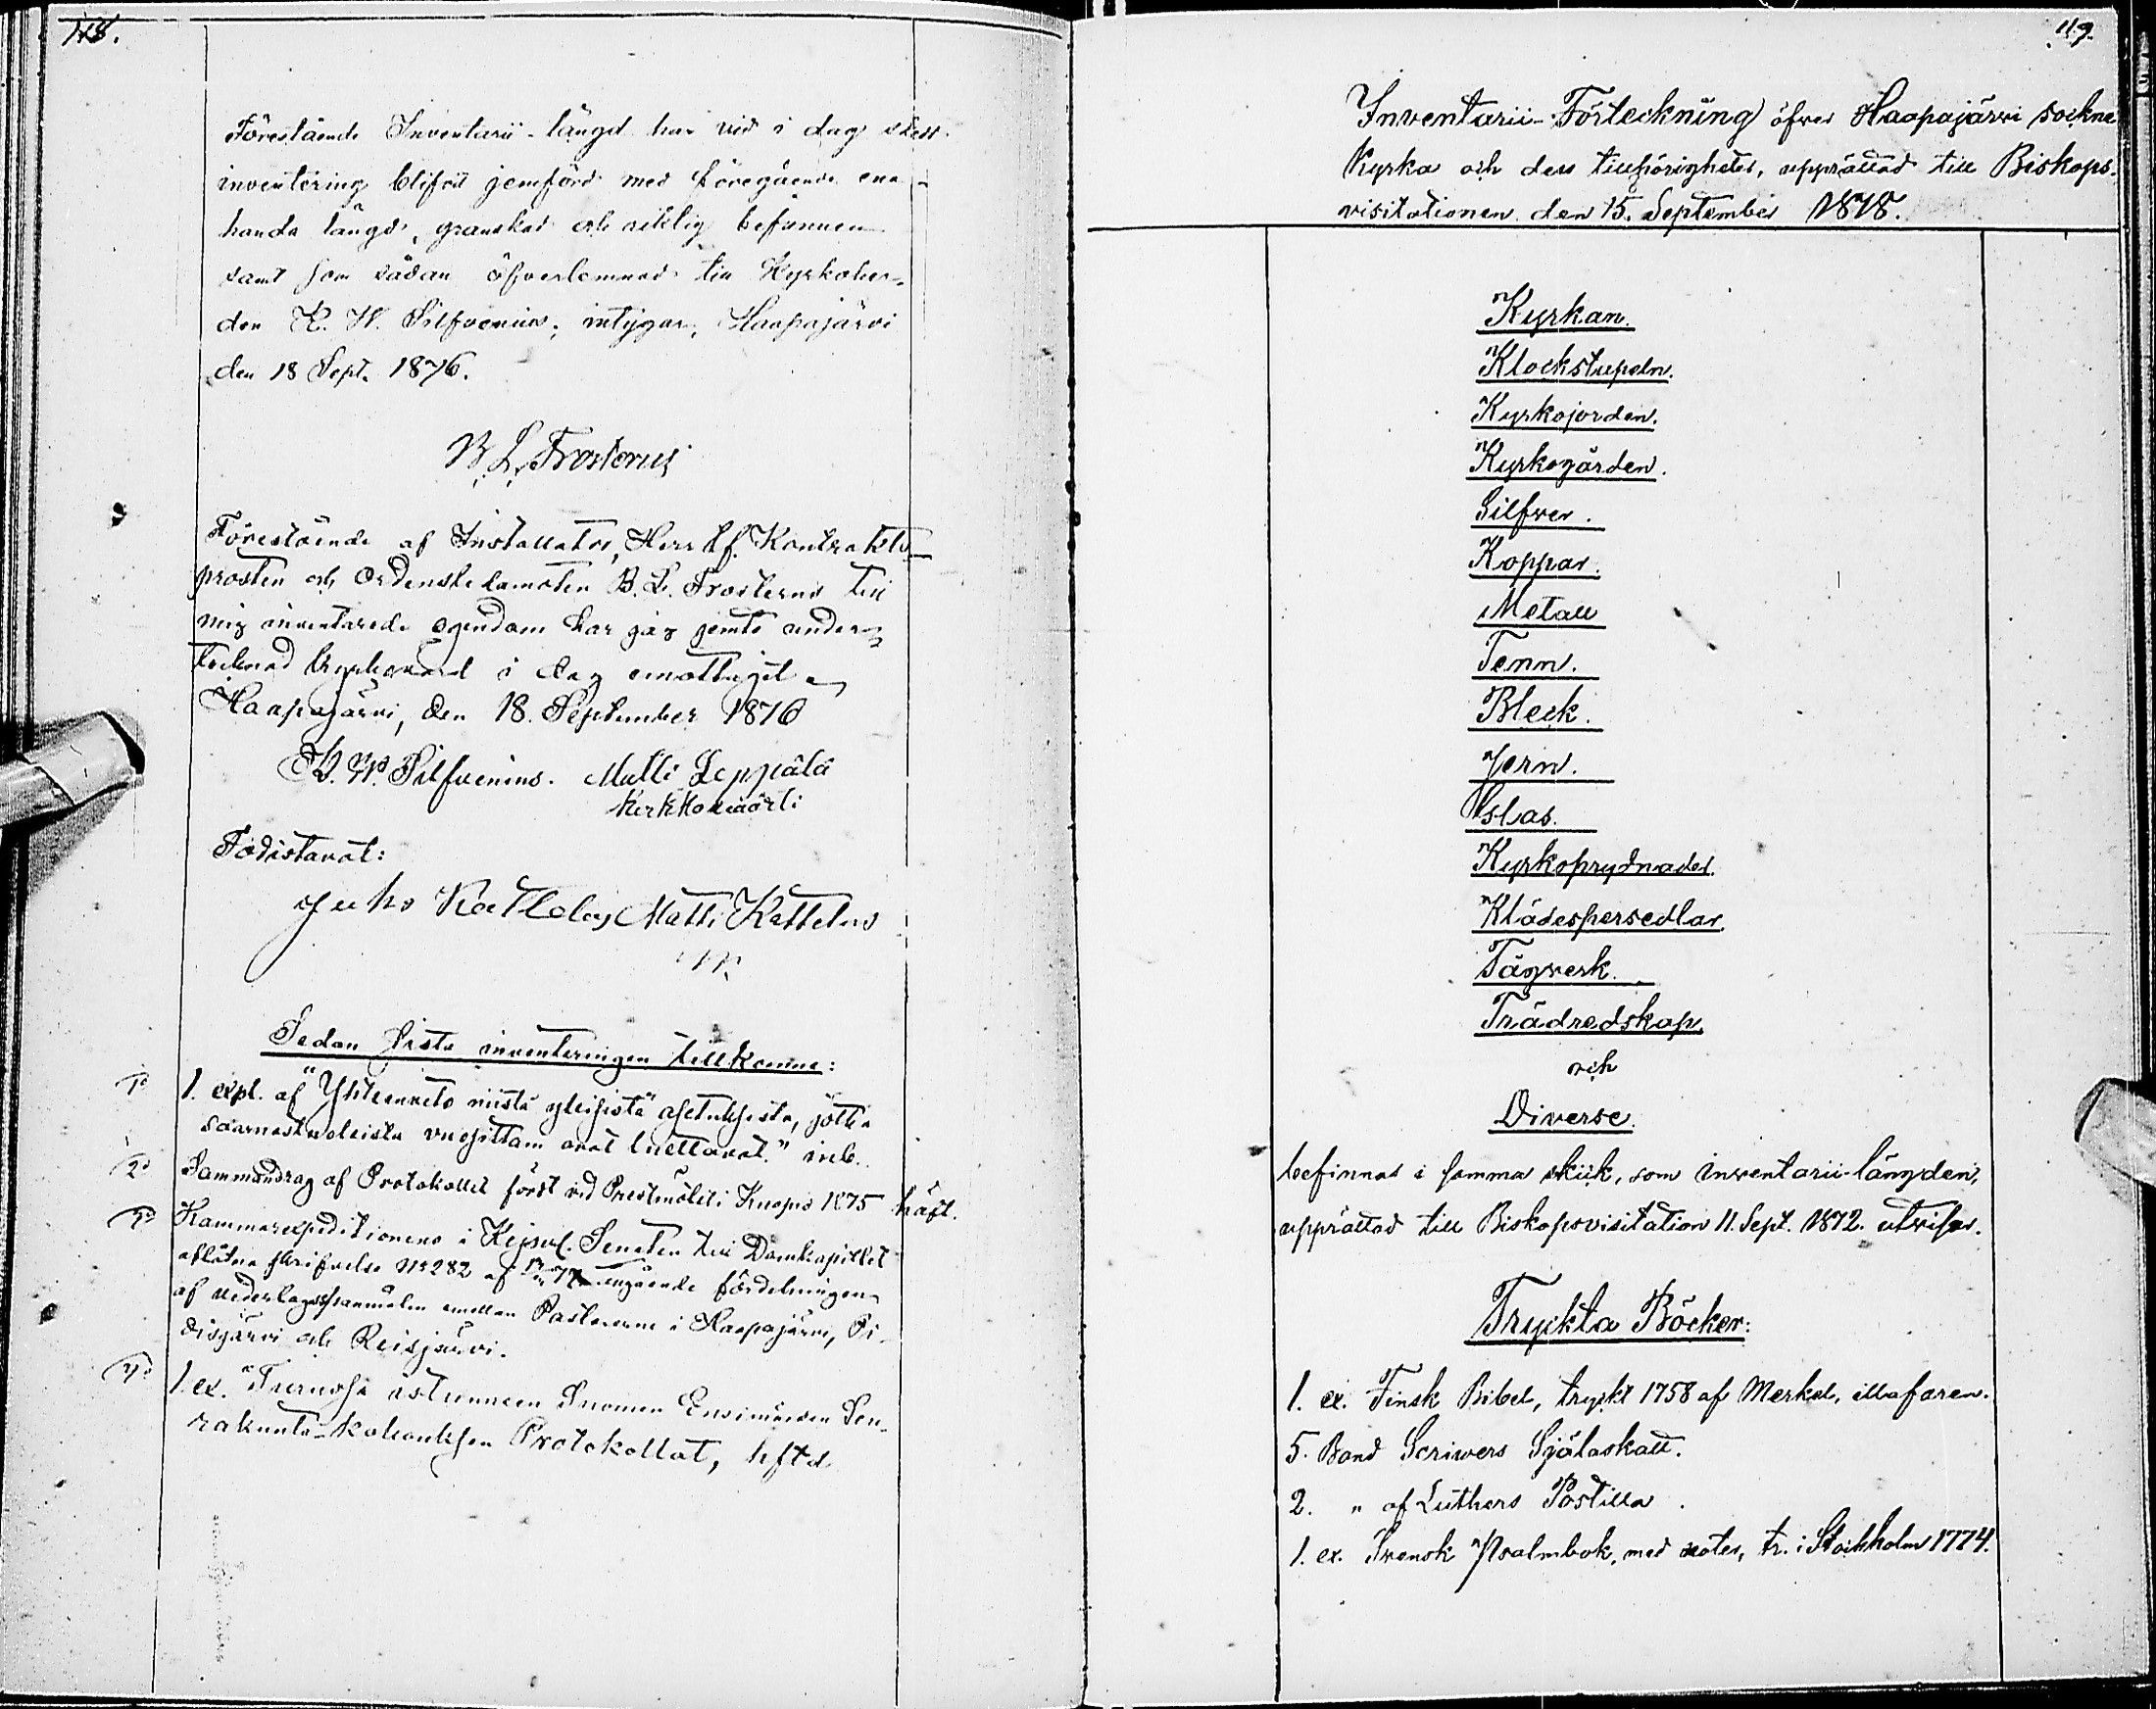 118.
Förestående Inventarii-längd har vid i dag skedd
inventering blifvit jemförd med föregående ena-
handa längd, granskad och riktig befunnen
samt som sådan öfverlemnad till Kyrkoher-
den K. W. Silfvenius; intygar, Haapajärvi
den 18 Sept. 1876.
B. L. Frosterus
Förestående af Installator, Herr tf. Kontrakts-
prosten och Ordensledamoten B. L. Frosterus till
mig inventerade egendom har jag jemte under-
tecknad Kyrkovärd i dag emottagit
Haapajärvi, den 18. September 1876
K. W. Silfvenius. Matti Leppälä
Kirkkowäärti
Todistavat:
Juho Kattelus Matti Kattelus
Sedan sista inventeringen tillkomne:
1o 1. expl. af "Yhteenveto niistä yleisistä asetuksista, jotka
saarnastuoleista vuosittain ovat luettavat." inb.
2o Sammandrag af Protokollet fördt vid Prestmötet i Kuopio 1875 häft.
3o Kammarexpeditionens i Kejserl. Senaten till Domkapitlet
aflåtna skrifvelse No 282 af angående fördelningen
af vederlagsspanmålen emellan Pastorerne i Haapajärvi, Pi-
disjärvi och Reisjärvi.
4o 1. ex. "Turussa istunneen Suomen Ensimäisen Seu-
rakunta-kokouksen Protokollat, hftd
119.
Inventarii-Förteckning öfver Haapajärvi sockne
Kyrka och dess tillhörigheter, upprättad till Biskops-
visitationen den 15. September 1878.
Kyrkan.
Klockstapeln.
Kyrkojorden.
Kyrkogården.
Silfver.
Koppar.
Metall
Tenn.
Bleck.
Jern.
Glas.
Kyrkoprydnader.
Klädespersedlar.
Tågverk.
Trädredskap,
och
Diverse.
befinnas i samma skick, som inventarii-längden,
upprättad till Biskopsvisitation 11. Sept. 1872. utvisar.
Tryckta Böcker:
1. ex. Finsk Bibel, tryckt 1758 af Merkel, illa faren.
5. Band Scrivers Själaskatt.
2. " af Luthers Postilla.
1. ex. Svensk Psalmbok, med noter, tr. i Stockholm 1774.